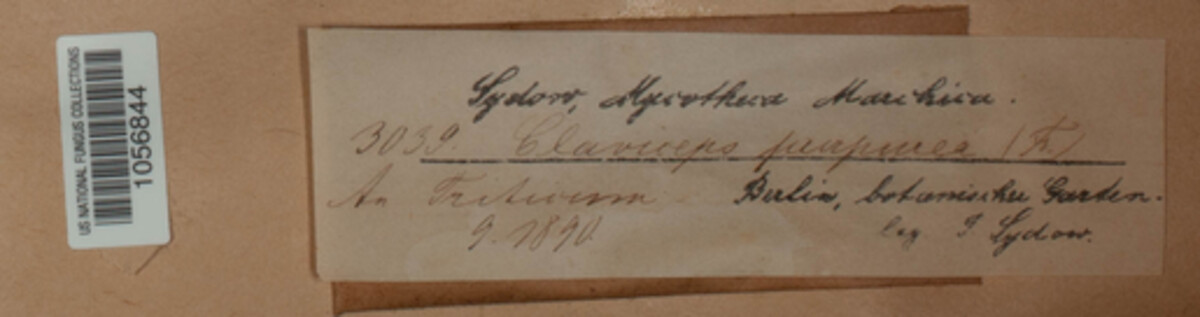 US NATIONAL FUNGUS COLLECTIONS
1056844
Sydow, Mycotheca Marchica.
3039. Claviceps purpurea (Fr.)
An Triticum
Berlin, botanischer Garten.
9. 1890.
leg. P. Sydow.